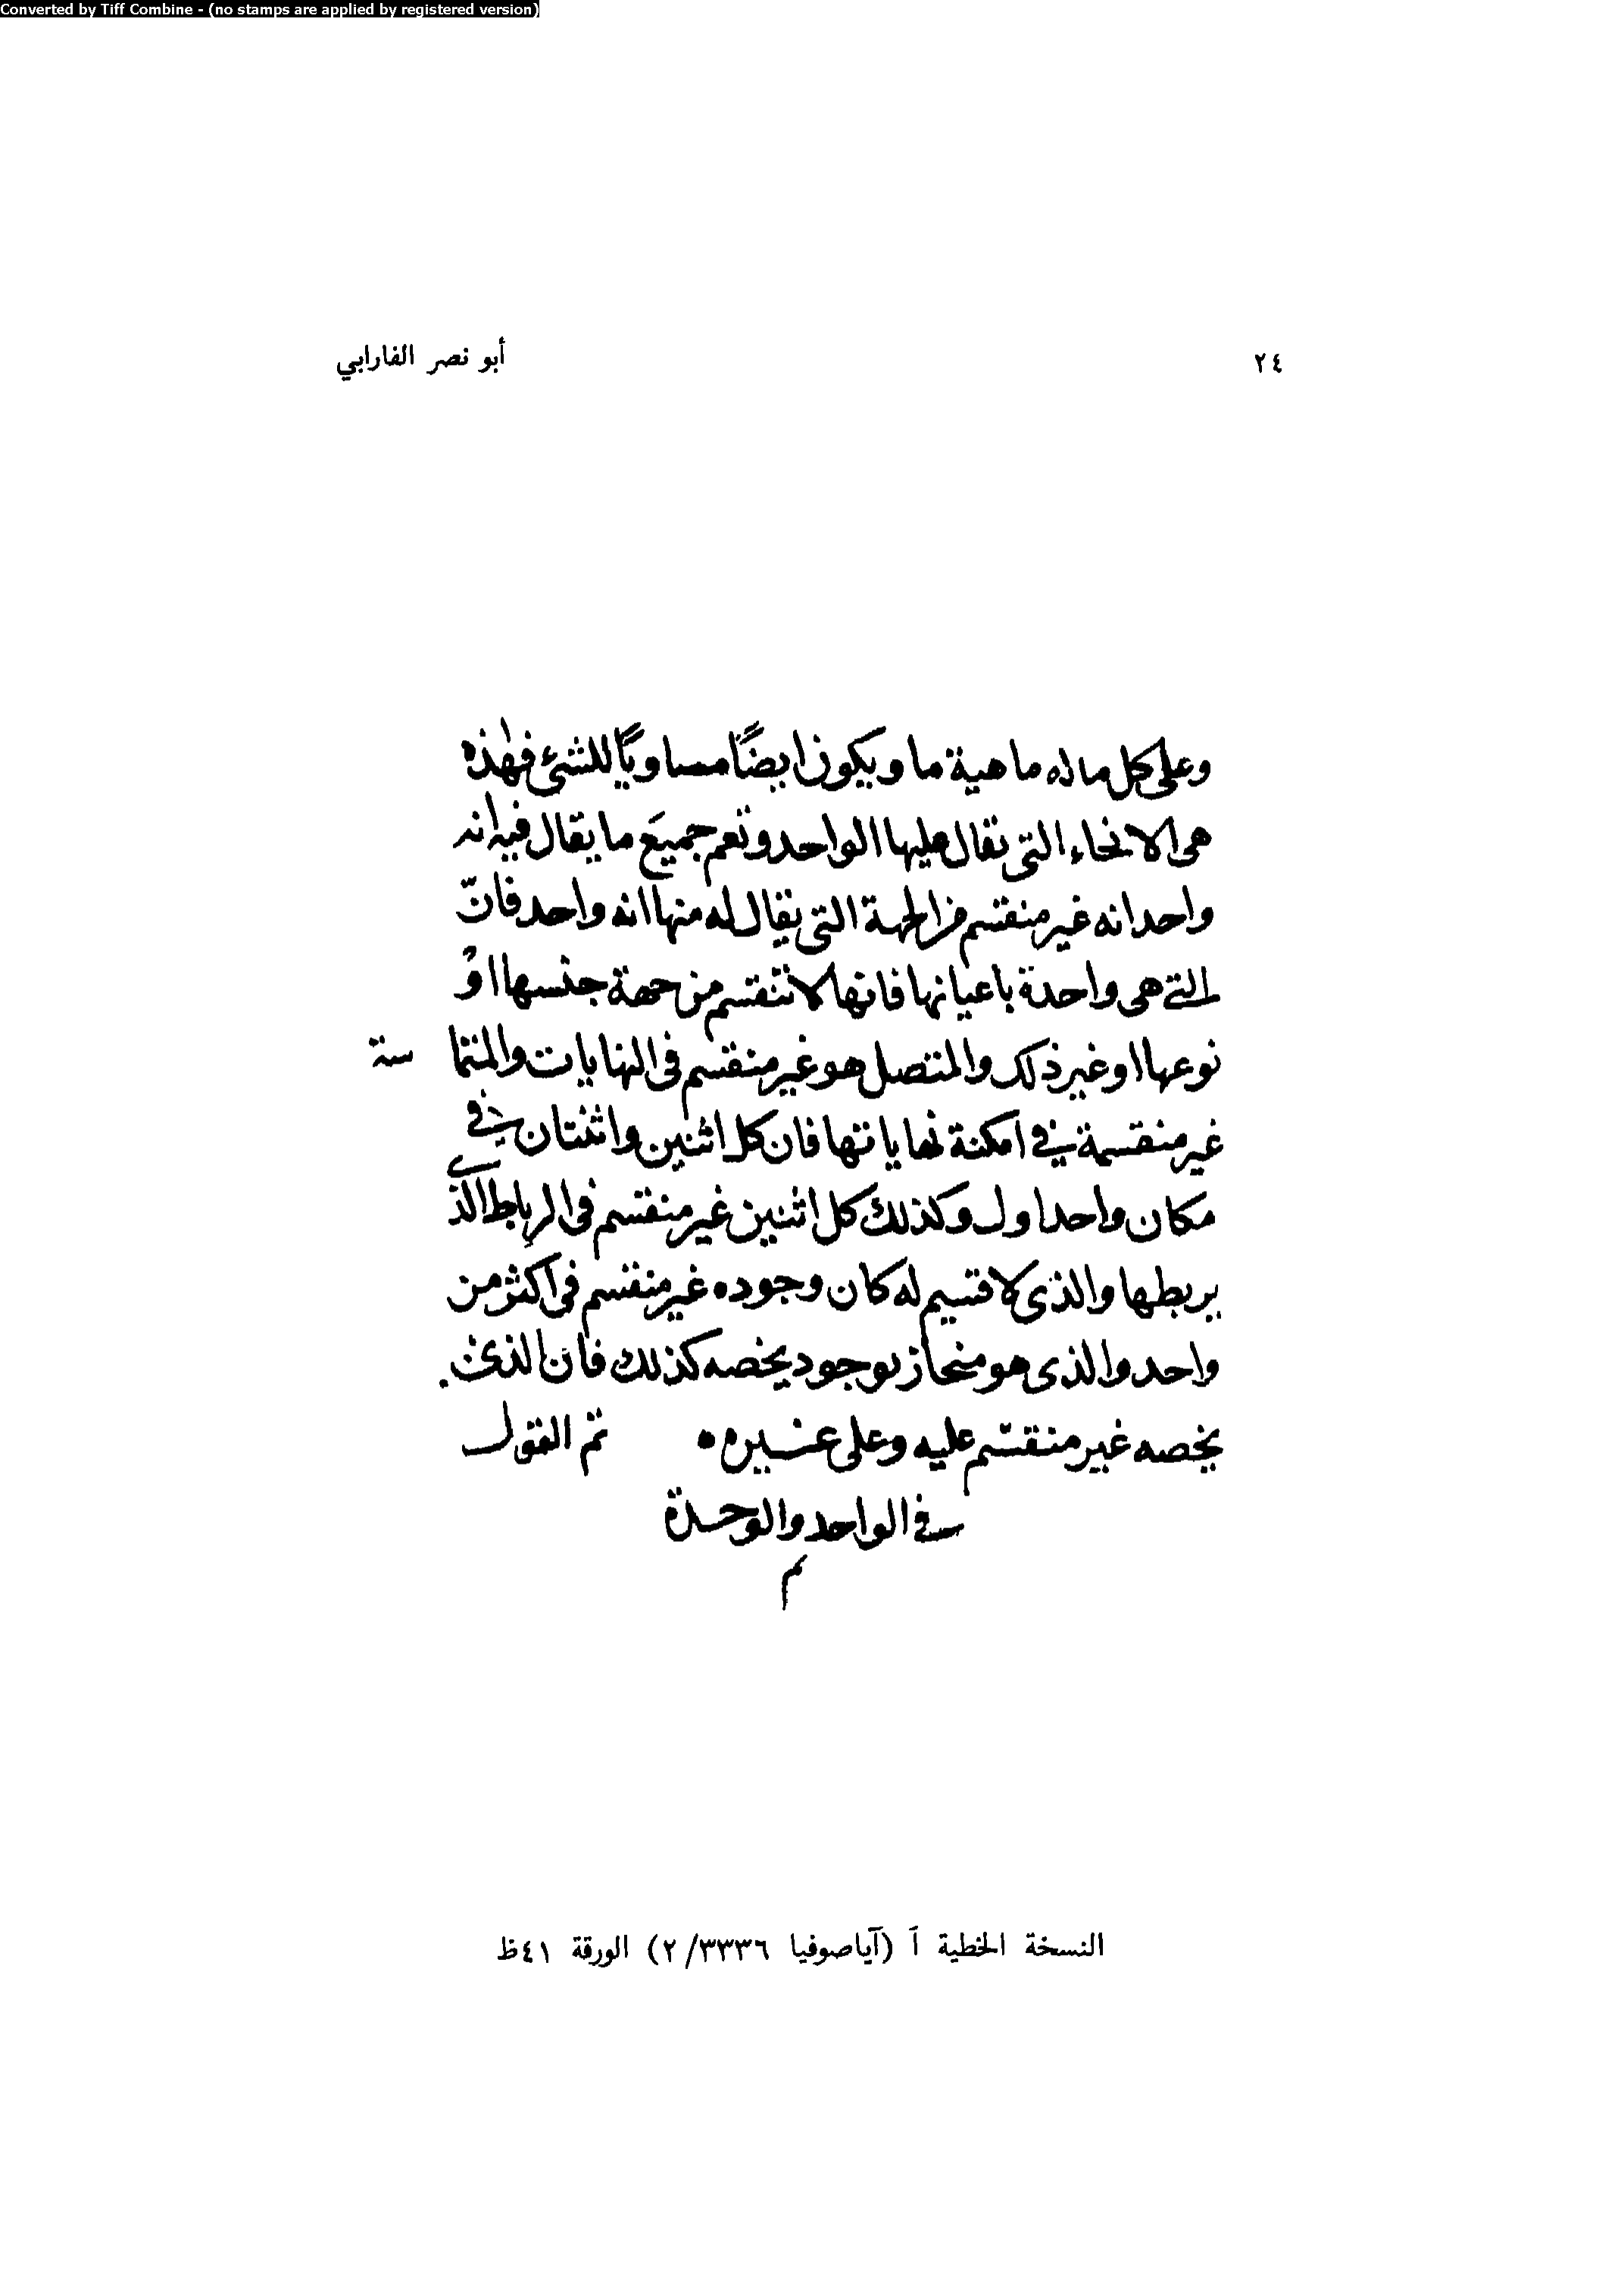 Converted by Tiff Combine - (no stamps are applied by registered version)
٢٤
أبو نصر الفارابي
وعلى كل ماله ماهية ما ويكون ايضًا مساويًا للشئ فهٰذه
هى الانحاء التى تقال عليها الواحد وتعم جميعَ ما يقال فيه انه
واحد انه غير منقسم من الجهة التى يقال له منها انه واحد فانّ
التى هى واحدة باعيانها فانها لا تنقسم من جهة جنسها اوْ
نوعها او غير ذلك والمتصل هو غير منقسم فى النهايات والمتما سة
غير منقسمة فى امكنة نهاياتها فان كل اثنين واثنتان فى
مكان واحد اول وكذلك كل اثنين غير منقسم فى الرباط الذى
يربطها والذى لا قسيم له كان وجوده غير منقسم فى اكثر من
واحد والذى هو منحاز بوجود يخصه كذلك فان الذى
يخصه غير منقسم عليه وعلى غيره ه تم القول
فى الواحد والوحدة
م
النسخة الخطية آ (آياصوفيا ٢/٣٣٣٦) الورقة ٤١ظ